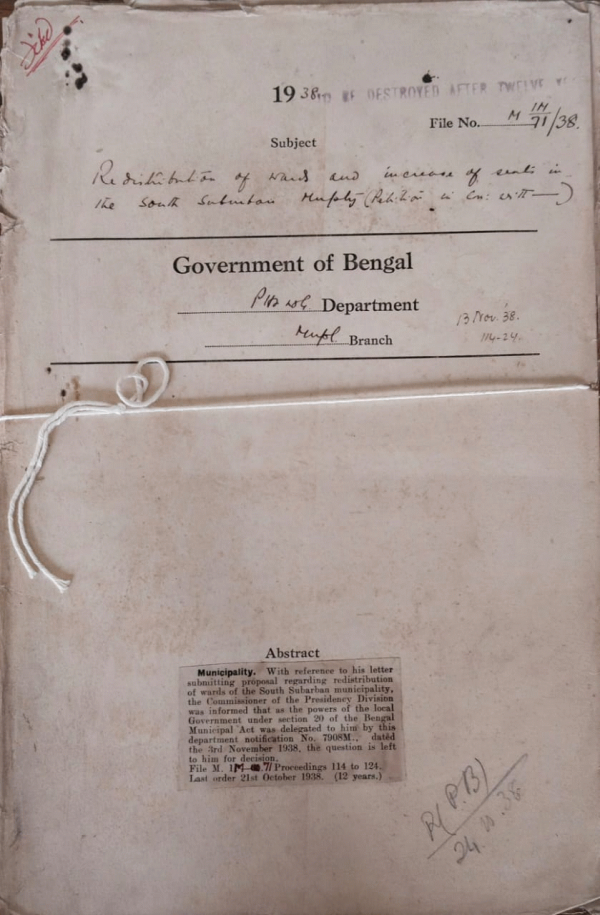 1938
TO BE DESTROYED AFTER TWELVE
File No. M 1M/71/38.
Subject
Redistribution of wards and increase of seats in
the South Suburban Muplty (Petition in
Government of Bengal
Department
B Nov. 38.
Mupl. Branch
114-24.
Abstract
Municipality. With reference to his letter
submitting proposal regarding redistribution
of wards of the South Subarban municipality,
the Commissioner of the Presidency Division
was informed that as the powers of the local
Government under section 20 of the Bengal
Municipal Act was delegated to him by this
department notification No. 7908M., dated
the 3rd November 1938, the question is left
to him for decision.
File M. 1M-71 Proceedings 114 to 124.
Last order 21st October 1938. (12 years.)
R(P.B)